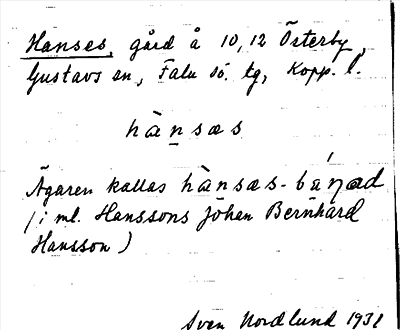 Hanses, gård å 10, 12 Österby,
Gustavs sn, Falu sö. tg, Kopp. l.
hànsæs
Ägaren kallas hànsæs-báŋad
(i ml. Hanssons Johan Bernhard
Hansson)
Sven Nordlund 1931